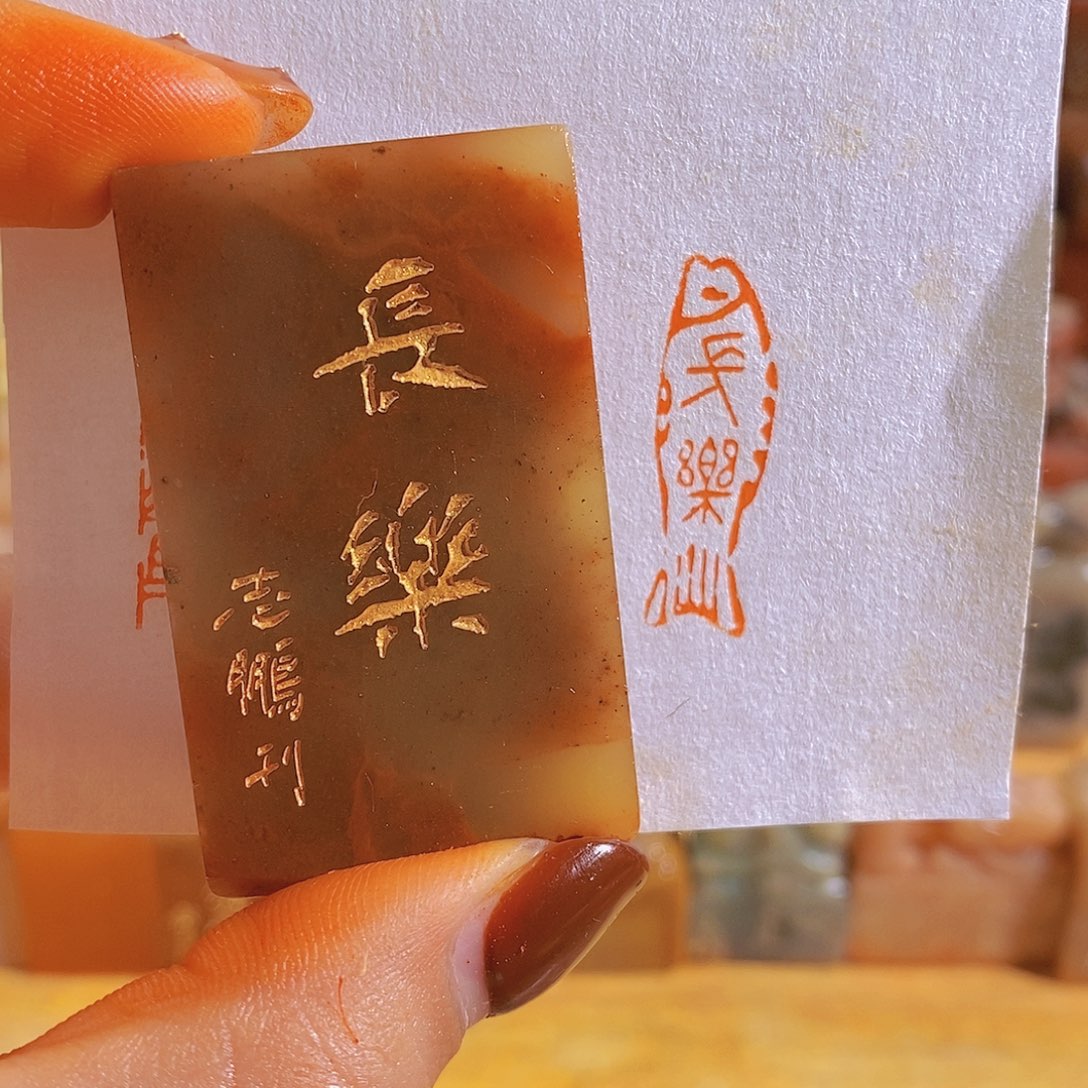 長樂
志鵬刊
長樂